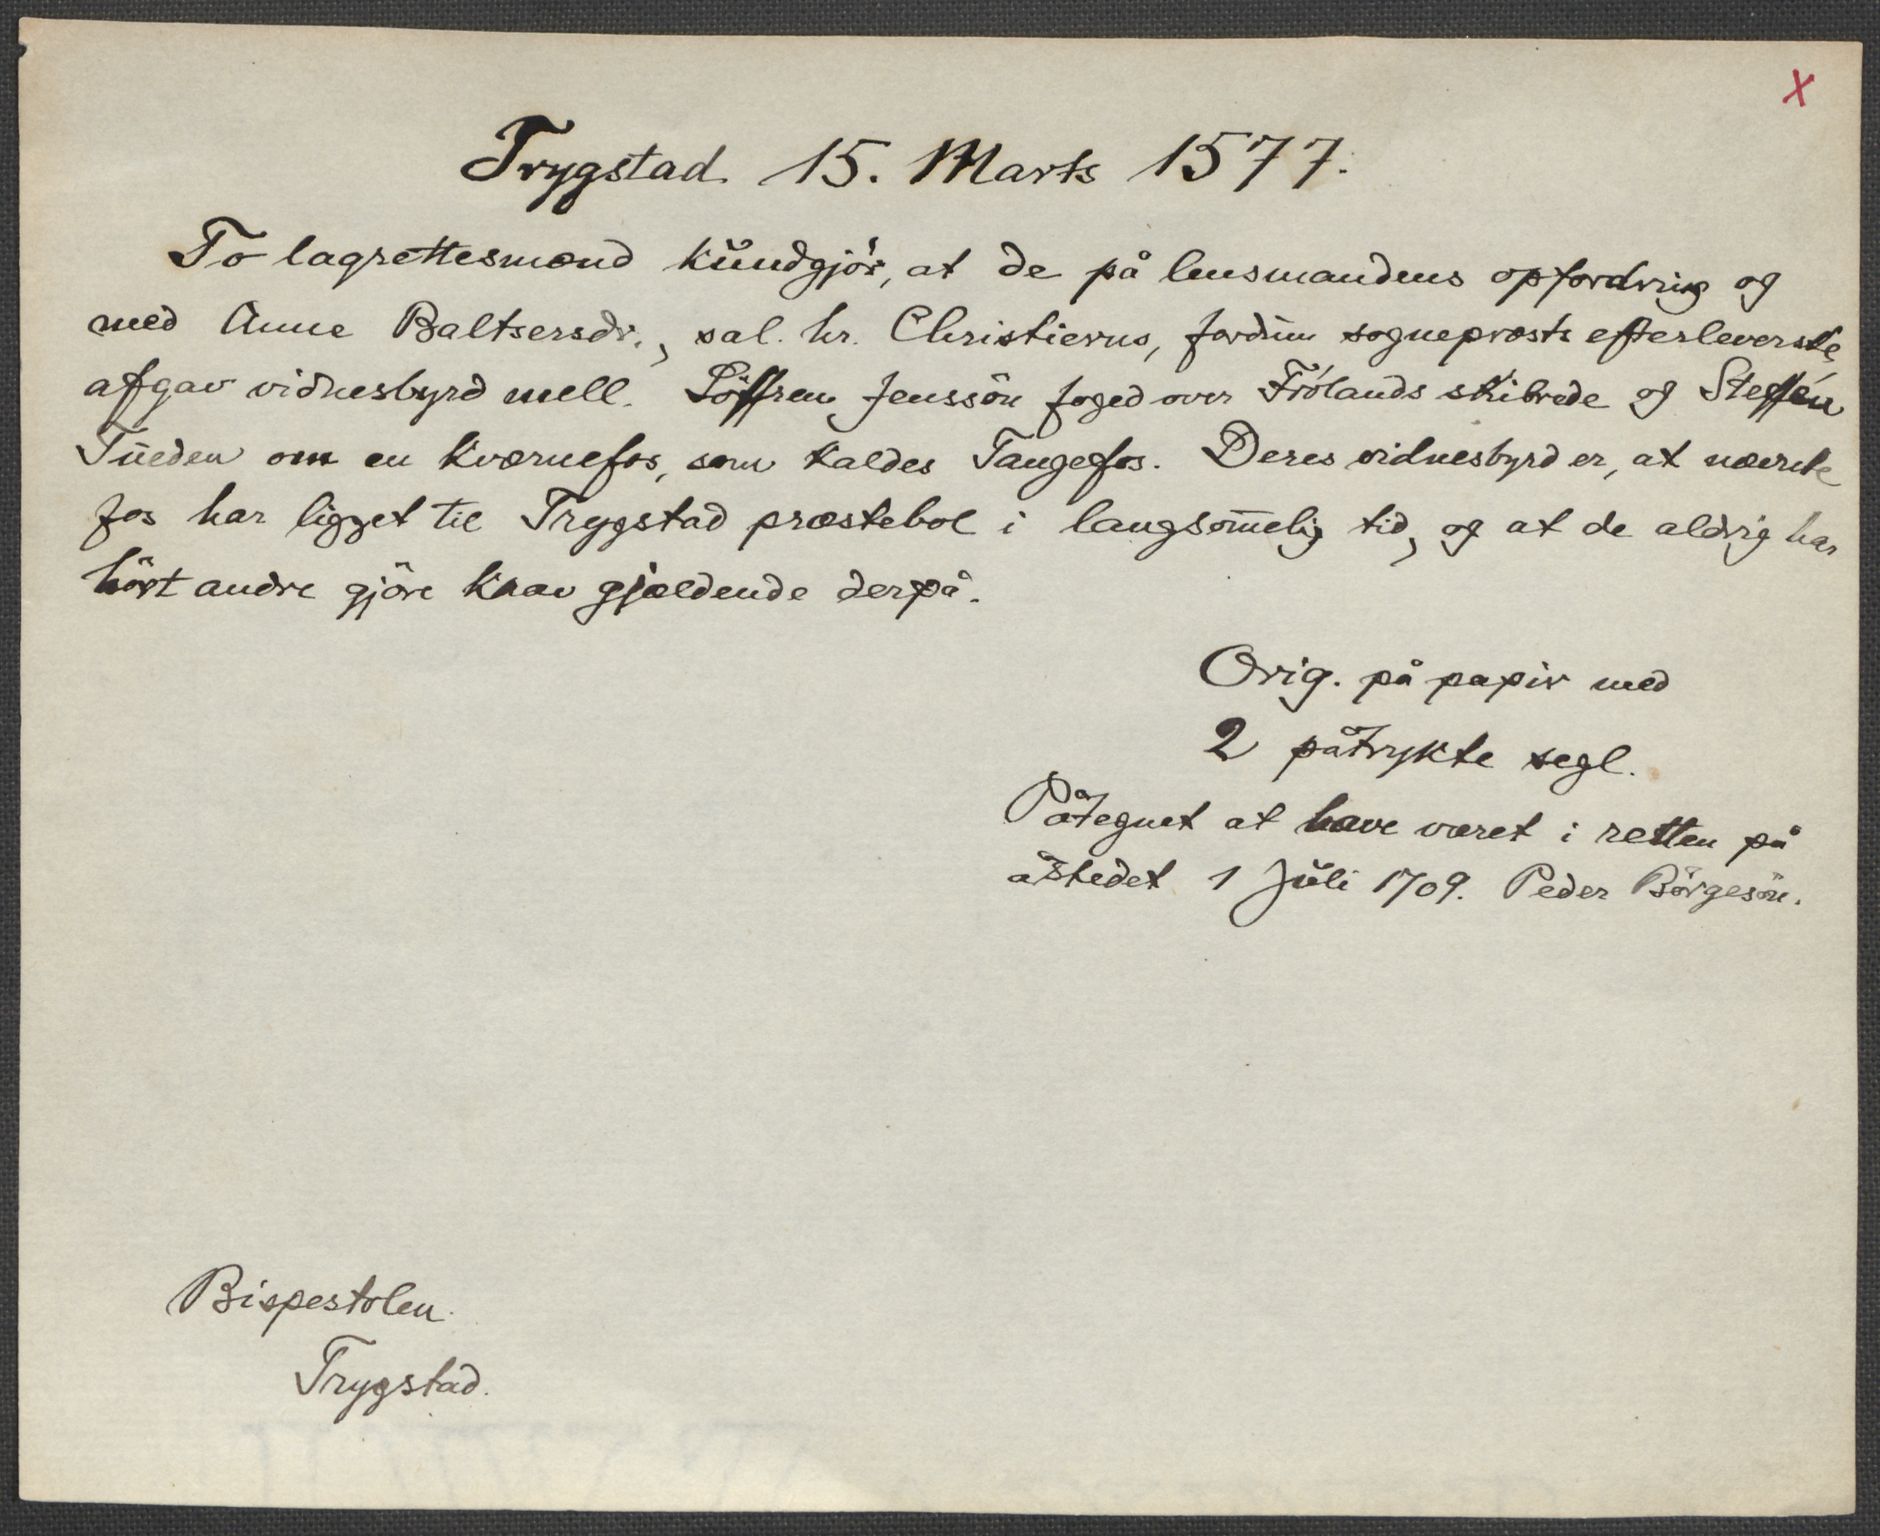 X
Trygstad 15. Marts 1577.
To lagrettesmænd kundgjör, at de på lensmandens opfordring og
med Anne Baltsersdr., sal. hr. Christierns, fordum sogneprests efterleverske,
afgav vidnesbyrd mell. Löffren Jenssön foged over Frölands skibrede og Steffen
Tueden om en kværnefos, som kaldes Tangefos. Deres vidnesbyrd er, at nævnte
fos har ligget til Trygstad præstebol i langsom̄elig tid, og at de aldrig har
hört andre gjöre krav gjældende derpå.
Orig. på papir med
2 påtrykte segl.
Påtegnet at have været i retten på
åstedet 1 Juli 1709. Peder Börgesön.
Bispestolen.
Trygstad.